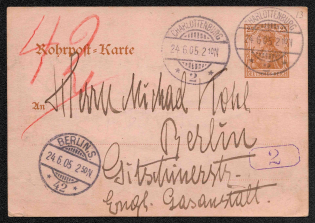 CHARLOTTENBURG
24.6.05. 2-3N
* 2 *
CHARLOTTENBURG
Rohrpost-Karte
An
Herrn Michael
Berlin
BERLIN.S.
24.6.05. 2-3N
* 42 *
Gitschinerstr.
2
Engl. Gasanstalt.